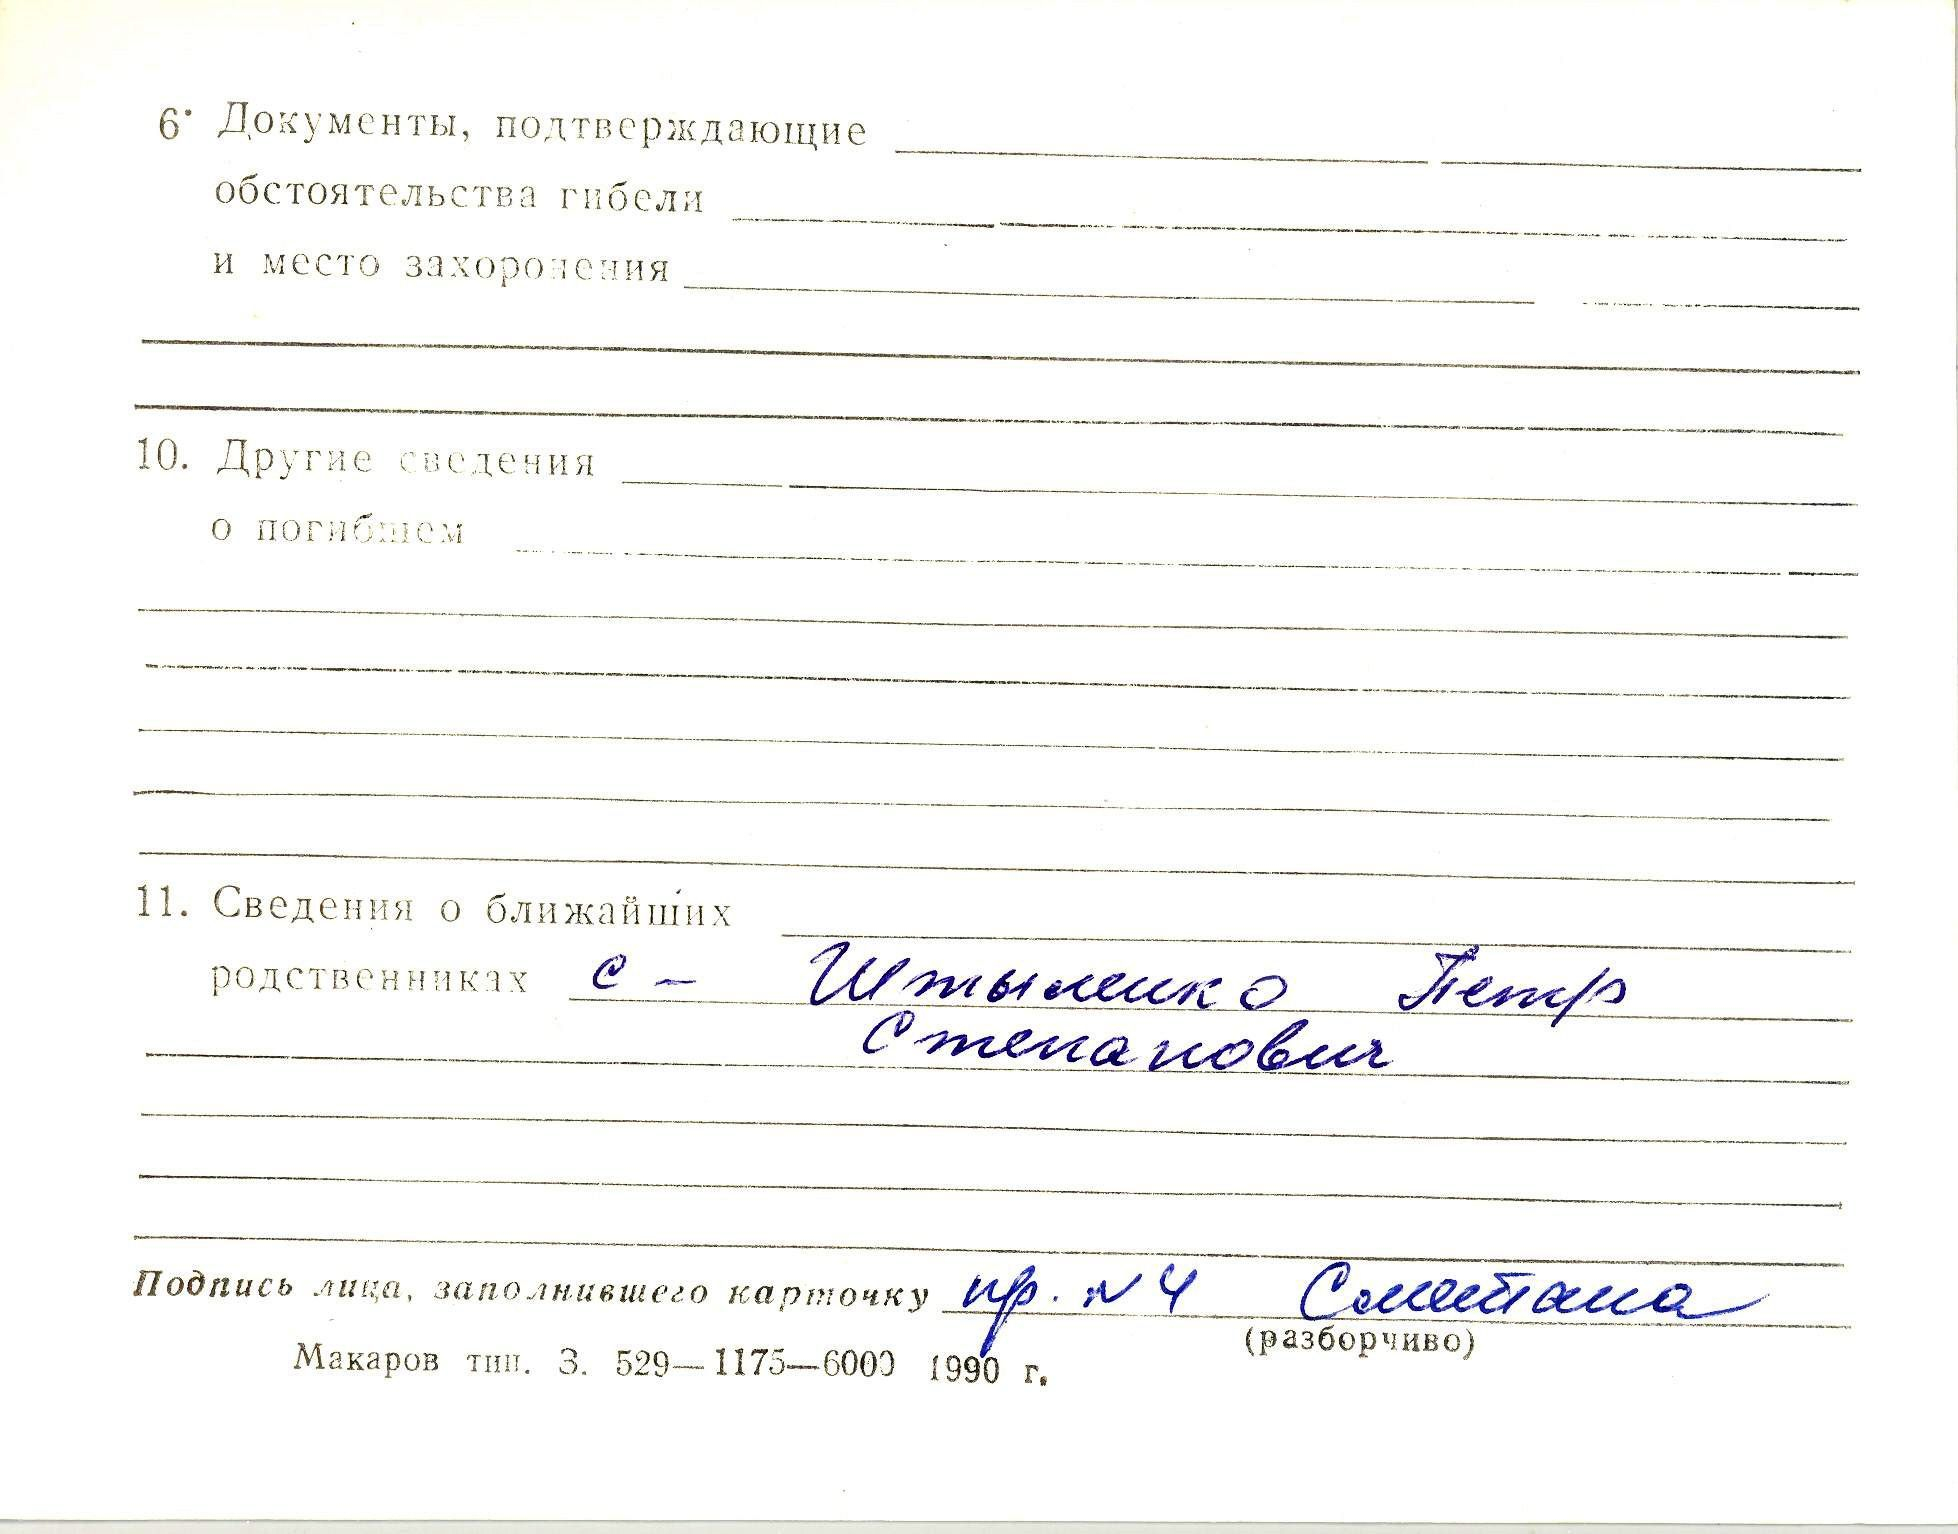 6. Документы, подтверждающие
обстоятельства гибели
и место захоронения
10. Другие сведения
о погибшем
11. Сведения о ближайших
родственниках с – Штыленко Петр
Степанович
Подпись лица, заполнившего карточку пр. N 4 Сметана
(разборчиво)
Макаров тип. З. 529—1175—6000 1990 г.